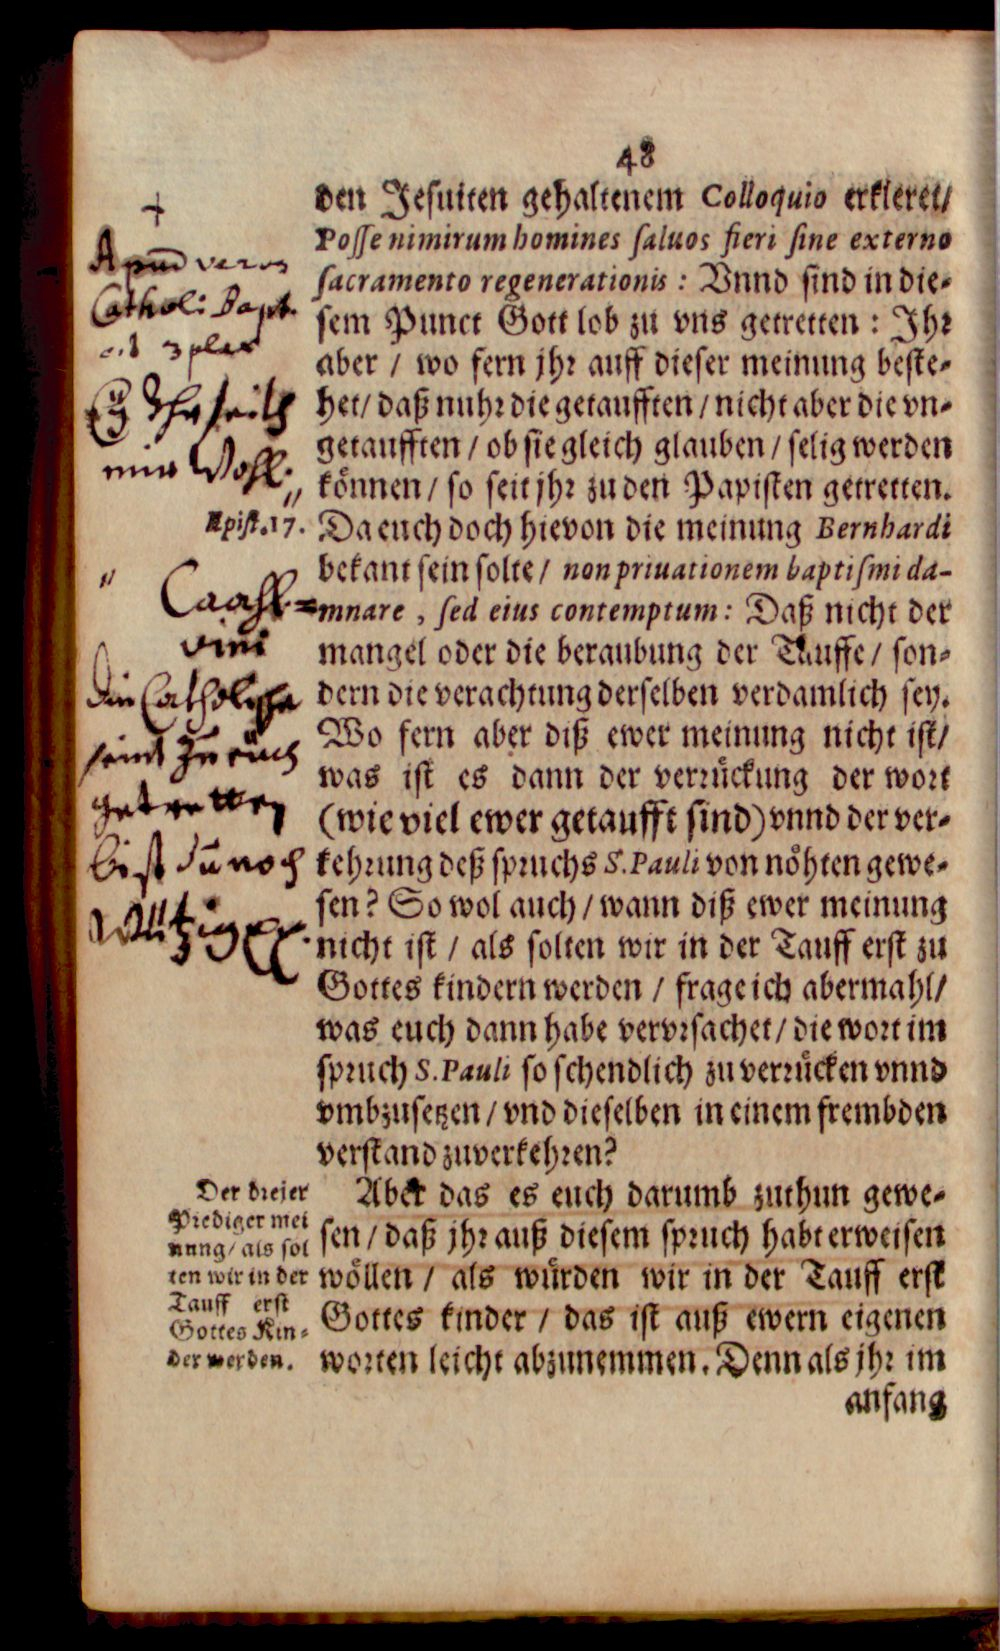 48
den Jesuiten gehaltenem Colloquio erkleret/
Posse nimirum homines saluos fieri sine externo
sacramento regenerationis : Vnnd sind in die-
sem Punct Gott lob zu vns getretten : Jhr
aber / wo fern jhr auff dieser meinung beste-
het/ daß nuhr die getaufften / nicht aber die vn-
getaufften / ob sie gleich glauben / selig werden
können / so seit jhr zu den Papisten getretten.
Da euch doch hievon die meinung Bernhardi
bekant sein solte / non priuationem baptismi da-
mnare , sed eius contemptum : Daß nicht der
mangel oder die beraubung der Tauffe / son-
dern die verachtung derselben verdamlich sey.
Wo fern aber diß ewer meinung nicht ist/
was ist es dann der verrückung der wort
(wie viel ewer getaufft sind) vnnd der ver-
kehrung deß spruchs S. Pauli von nöhten gewe-
sen? So wol auch / wann diß ewer meinung
nicht ist / als solten wir in der Tauff erst zu
Gottes kindern werden / frage ich abermahl/
was euch dann habe vervrsachet / die wort im
spruch S. Pauli so schendlich zu verrücken vnnd
vmbzusetzen / vnd dieselben in einem frembden
verstand zuverkehren?
Aber das es euch darumb zuthun gewe-
sen / daß jhr auß diesem spruch habt erweisen
wöllen / als würden wir in der Tauff erst
Gottes kinder / das ist auß ewern eigenen
worten leicht abzunemmen. Denn als jhr im
anfang
Apud veros
Cathol: Bapt.
3plex
Ihr seith
mir Wohl.
Epist. 17.
Die Catholische
seint zu euch
getretten
bist du noch
witzig
Der dreier
Prediger mei
nung/ als sol
ten wir in der
Tauff erst
Gottes Kin-
der werden.